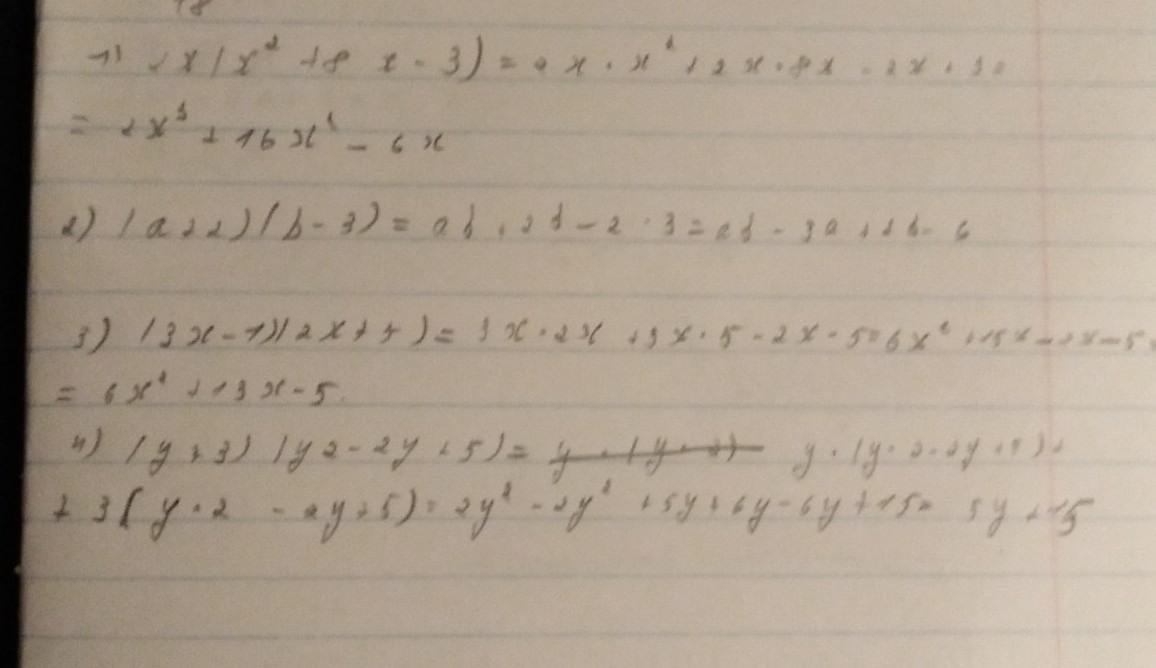 18
1) 2x(x² + 8x - 3) = 2x · x² + 2x · 8x - 2x · 3 =
= 2x³ + 16x² - 6x
2) (a + 2)(b - 3) = ab + 2b - 2 · 3 = ab - 3a + 2b - 6
3) (3x - 1)(2x + 5) = 3x · 2x + 3x · 5 - 2x - 5 = 6x² + 15x - 2x - 5 =
= 6x² + 13x - 5.
4) (y + 3)(y2 - 2y + 5) = y · (y · 2 - 2y + 5) +
+ 3(y · 2 - 2y + 5) = 2y² - 2y² + 5y + 6y - 6y + 15 = 5y + 15